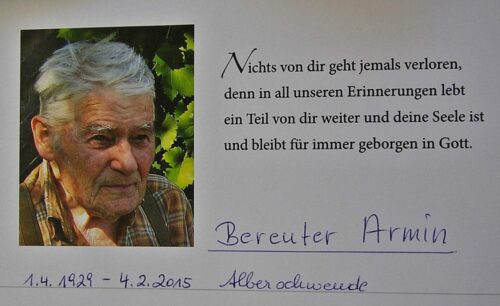 Nichts von dir geht jemals verloren,
denn in all unseren Erinnerungen lebt
ein Teil von dir weiter und deine Seele ist
und bleibt für immer geborgen in Gott.
Bereuter Armin
1.4.1929 - 4.2.2015 Alberschwende